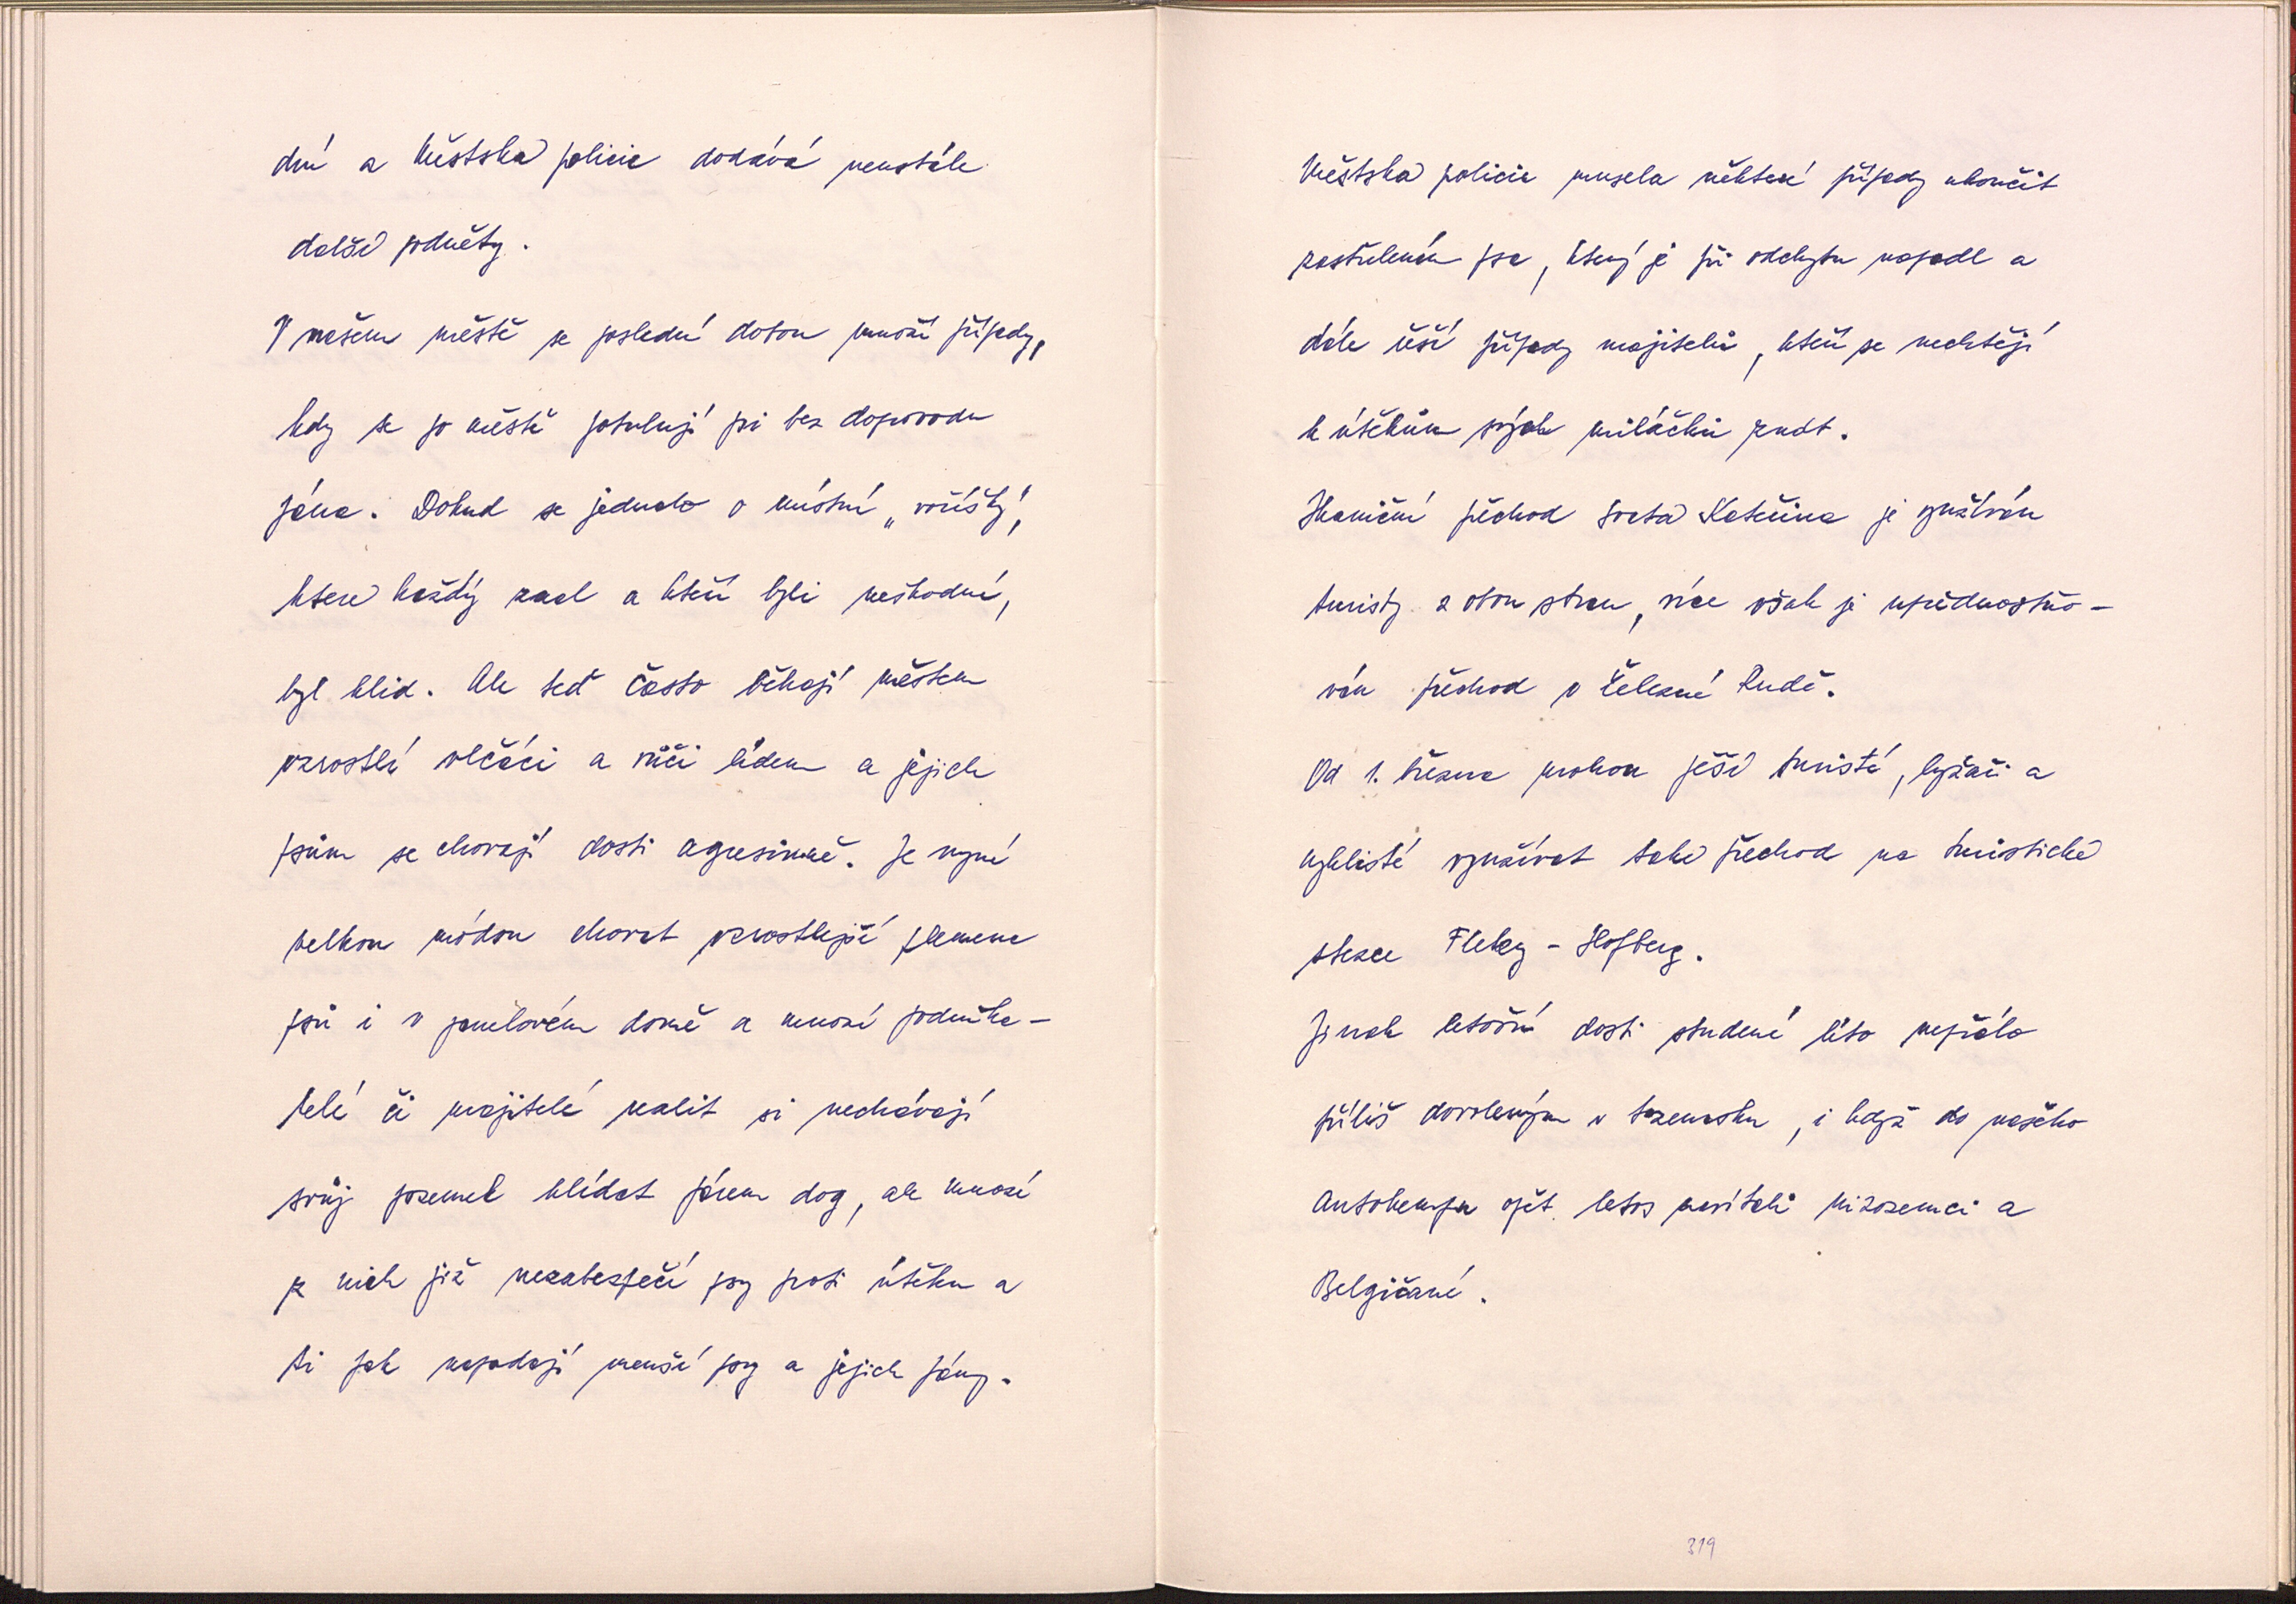 dní a Městská policie dodává neustále
další podněty.
V našem městě se poslední dobou množí případy,
kdy se po městě potulují psi bez doprovodu
pána. Dokud se jednalo o místní „voříšky",
které každý znal a kteří byli neškodní,
byl klid. Ale teď často běhají městem
vzrostlí vlčáci a vůči lidem a jejich
psům se chovají dosti agresivně. Je nyní
velkou módou chovat vzrostlejší plemena
psů i v panelovém domě a mnozí podnika-
telé či majitelé realit si nechávají
svůj pozemek hlídat párem dog, ale mnozí
z nich již nezabezpečí psy proti útěku a
ti pak napadají menší psy a jejich pány.
Městská policie musela některé případy ukončit
zastřelením psa, který je při odchytu napadl a
dále řeší případy majitelů, kteří se nechtějí
k útěkům svých miláčků znát.
Hraniční přechod Svatá Kateřina je využíván
turisty z obou stran, více však je upřednostňo-
ván přechod v Železné Rudě.
Od 1. března mohou pěší turisté, lyžaři a
cyklisté využívat také přechod na turistické
stezce Fleky - Hofberg.
Jinak letošní dosti studené léto nepřálo
příliš dovoleným v tuzemsku, i když do našeho
Autokempu opět letos zavítali Nizozemci a
Belgičané.
319